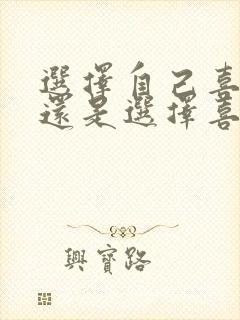 選擇自己喜
還是選擇喜
興寶路